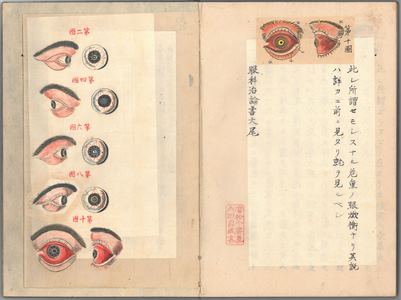 第十圖
此レ所謂セモレスナル危重ノ眼焮衝ナリ其説
ハ詳カニ前ニ見タリ就テ見ルベシ
眼科治論書大尾
第二圖
第四圖
第六圖
第八圖
第十圖